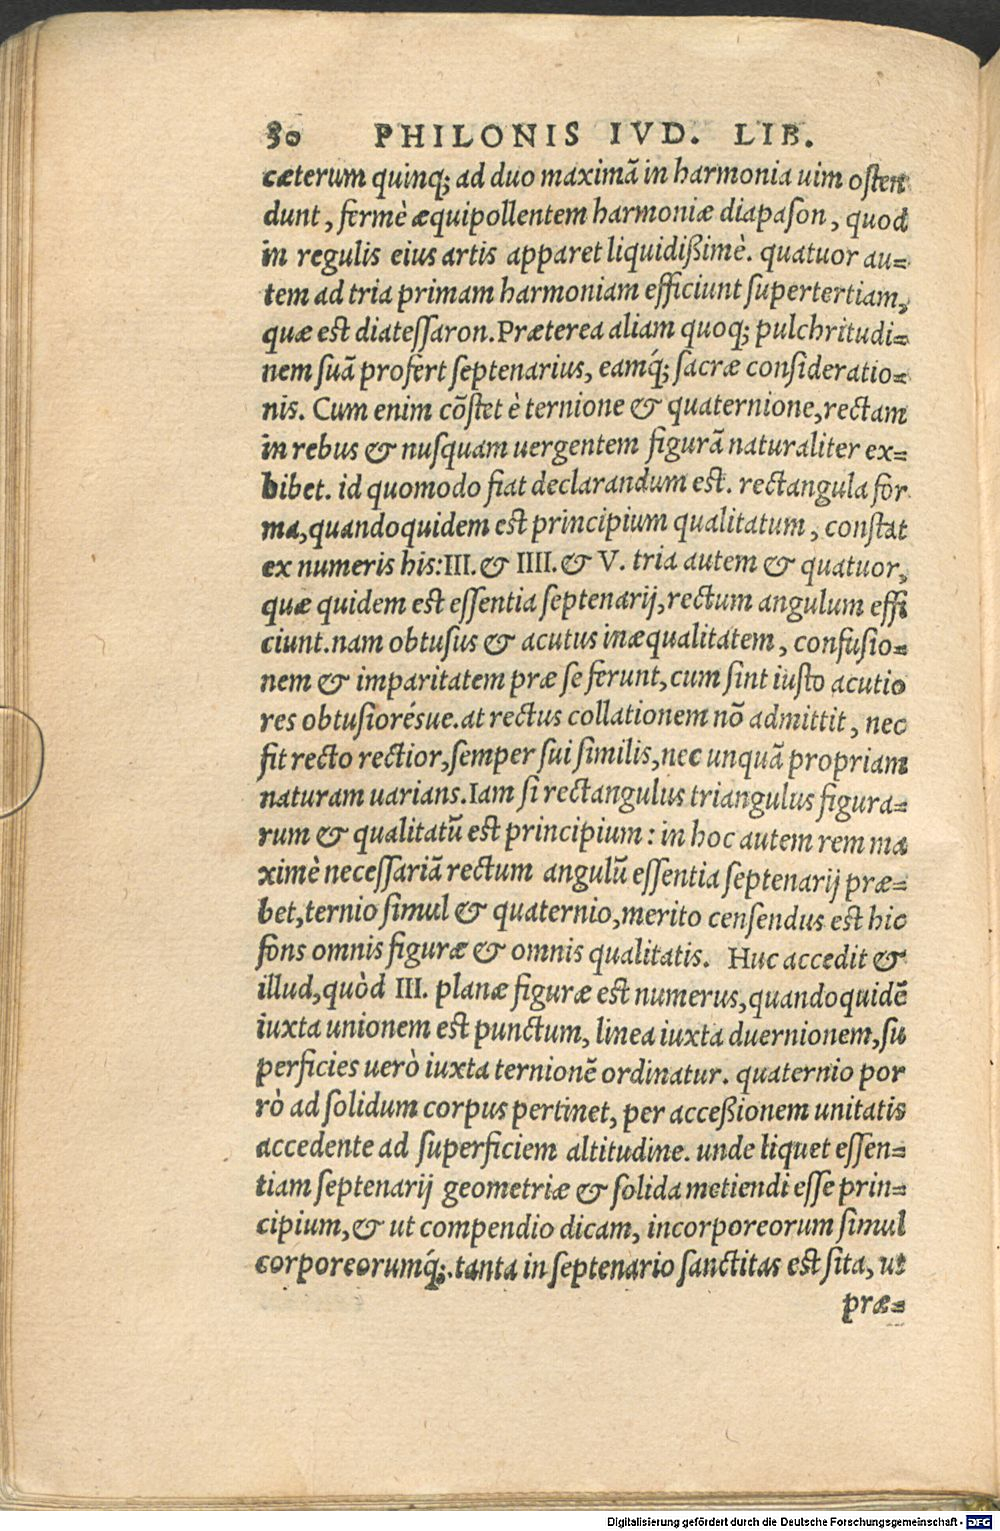 30 PHILONIS IVD. LIB.
cæterum quinq; ad duo maximā in harmonia uim osten
dunt, fermè æquipollentem harmoniæ diapason, quod
in regulis eius artis apparet liquidißimè. quatuor au=
tem ad tria primam harmoniam efficiunt supertertiam,
quæ est diatessaron. Præterea aliam quoq; pulchritudi=
nem suā profert septenarius, eamq́; sacræ consideratio=
nis. Cum enim cōstet è ternione & quaternione, rectam
in rebus & nusquam uergentem figurā naturaliter ex=
hibet. id quomodo fiat declarandum est. rectangula for
ma, quandoquidem est principium qualitatum, constat
ex numeris his: III. & IIII. & V. tria autem & quatuor,
quæ quidem est essentia septenarij, rectum angulum effi
ciunt. nam obtusus & acutus inæqualitatem, confusio=
nem & imparitatem præ se ferunt, cum sint iusto acutio
res obtusiorésue. at rectus collationem nō admittit, nec
fit recto rectior, semper sui similis, nec unquā propriam
naturam uarians. Iam si rectangulus triangulus figura=
rum & qualitatū est principium: in hoc autem rem ma
ximè necessariā rectum angulū essentia septenarij præ=
bet, ternio simul & quaternio, merito censendus est hic
fons omnis figuræ & omnis qualitatis. Huc accedit &
illud, quòd III. planæ figuræ est numerus, quandoquidē
iuxta unionem est punctum, linea iuxta duernionem, su
perficies uerò iuxta ternionē ordinatur. quaternio por
rò ad solidum corpus pertinet, per acceßionem unitatis
accedente ad superficiem altitudine. unde liquet essen=
tiam septenarij geometriæ & solida metiendi esse prin=
cipium, & ut compendio dicam, incorporeorum simul
corporeorumq́;. tanta in septenario sanctitas est sita, ut
præ=
Digitalisierung gefördert durch die Deutsche Forschungsgemeinschaft - DFG